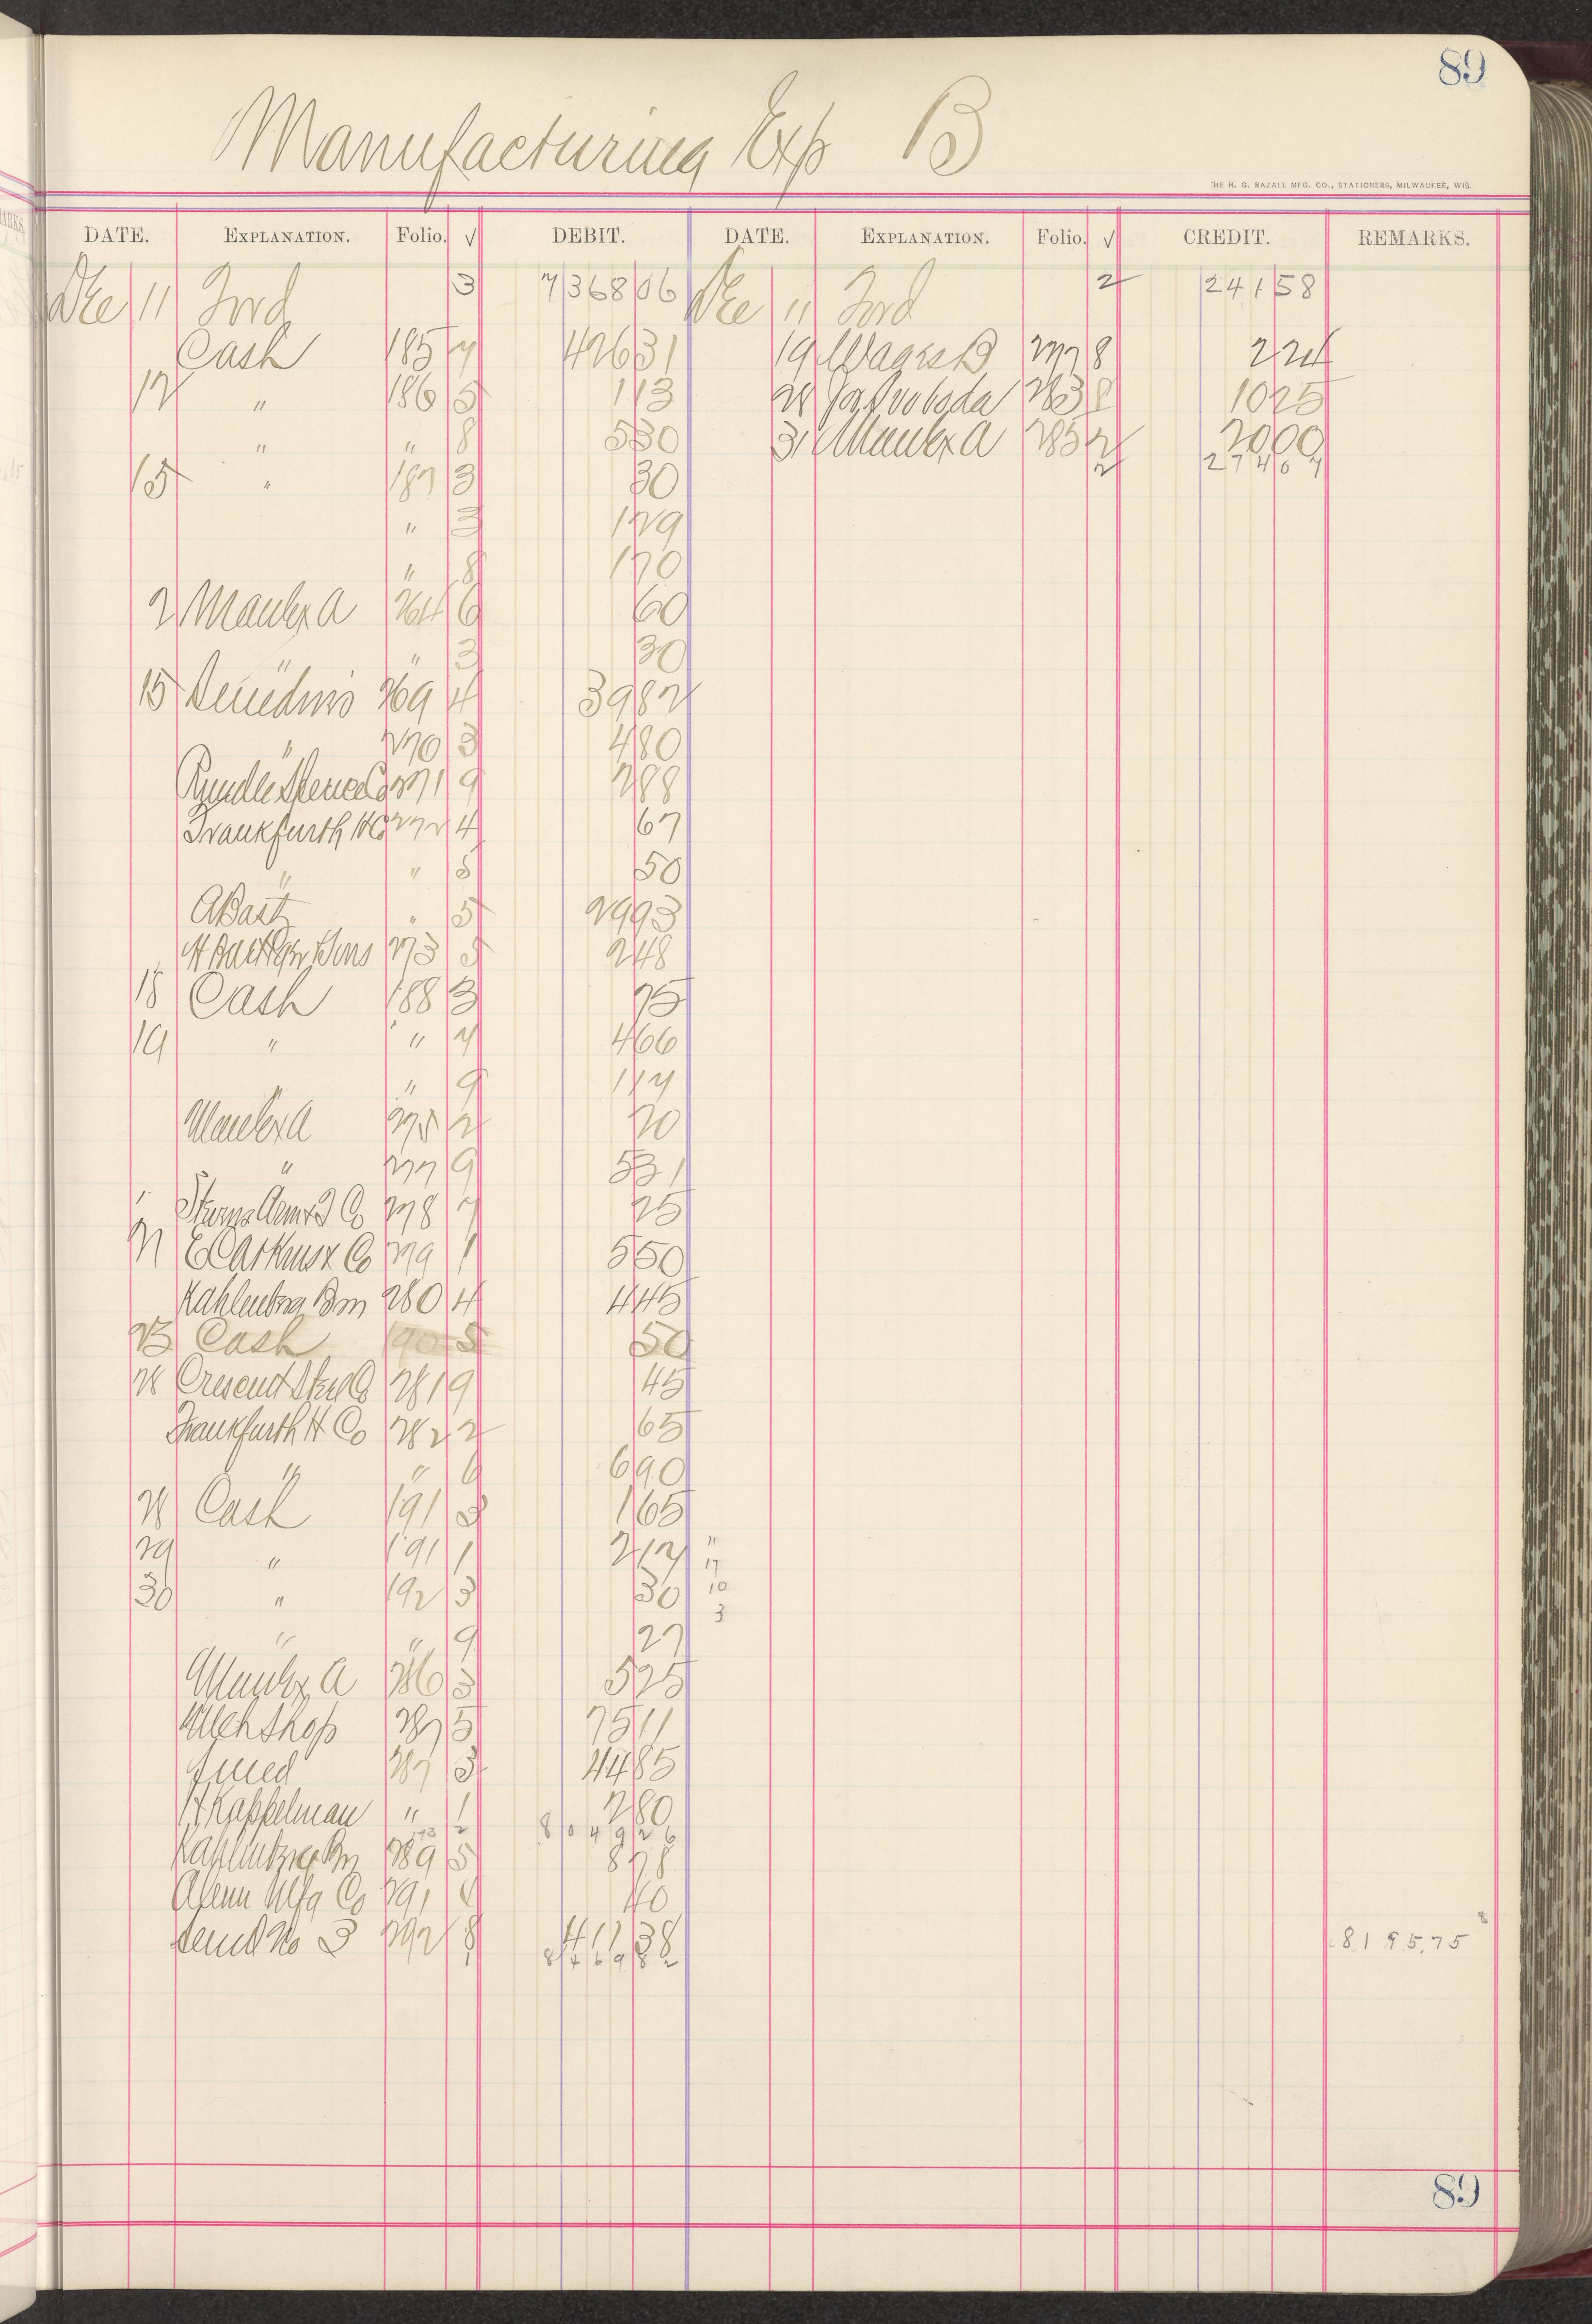 89
Manufacturing Exp B
THE H. G. RAZALL MFG. CO., STATIONERS, MILWAUKEE, WIS.
DATE. EXPLANATION. Folio. √ DEBIT. DATE. EXPLANATION. Folio. √ CREDIT. REMARKS.
Dec 11 Ford 3 7368 06 Dec 11 Ford 2 241 58
Cash 185 7 426 31 19 Wages B 277 8 2 24
12 " 186 5 1 13 28 283 8 10 25
" " 8 5 30 31 Manfg A 285 2 20 00
2 274 07
15 " 187 3 30
" 3 1 29
" 8 1 70
2 Manfg A 264 6 60
" " 3 30
15 Sundries 269 4 39 82
" 270 3 4 80
Rundle Spence Co 271 9 2 88
Frankfurth H Co 272 4 67
" " 8 50
" 5 29 93
Sons 273 5 2 48
18 Cash 188 3 75
19 " " 7 4 66
" 9 1 14
Manfg A 275 2 20
" 277 9 5 31
" Co 278 7 25
21 Co 279 1 5 50
Kahlenberg Bros 280 4 4 45
23 Cash 190 5 50
28 Cresent Steel Co 281 9 45
Frankfurth H Co 282 2 65
" " 6 6 90
28 Cash 191 3 1 65
29 " 191 1 2 12 "
17
30 " 192 3 30 10
3
" " 9 27
Manfg A 286 3 5 25
Mch Shop 287 5 75 11
287 3 44 85
H Kappelman " 1 2 80
8049 26
Kahlenberg Bros 289 5 8 78
Mfg Co 291 40
Sund No 3 292 8 411 38
8469 82
8195.75
89